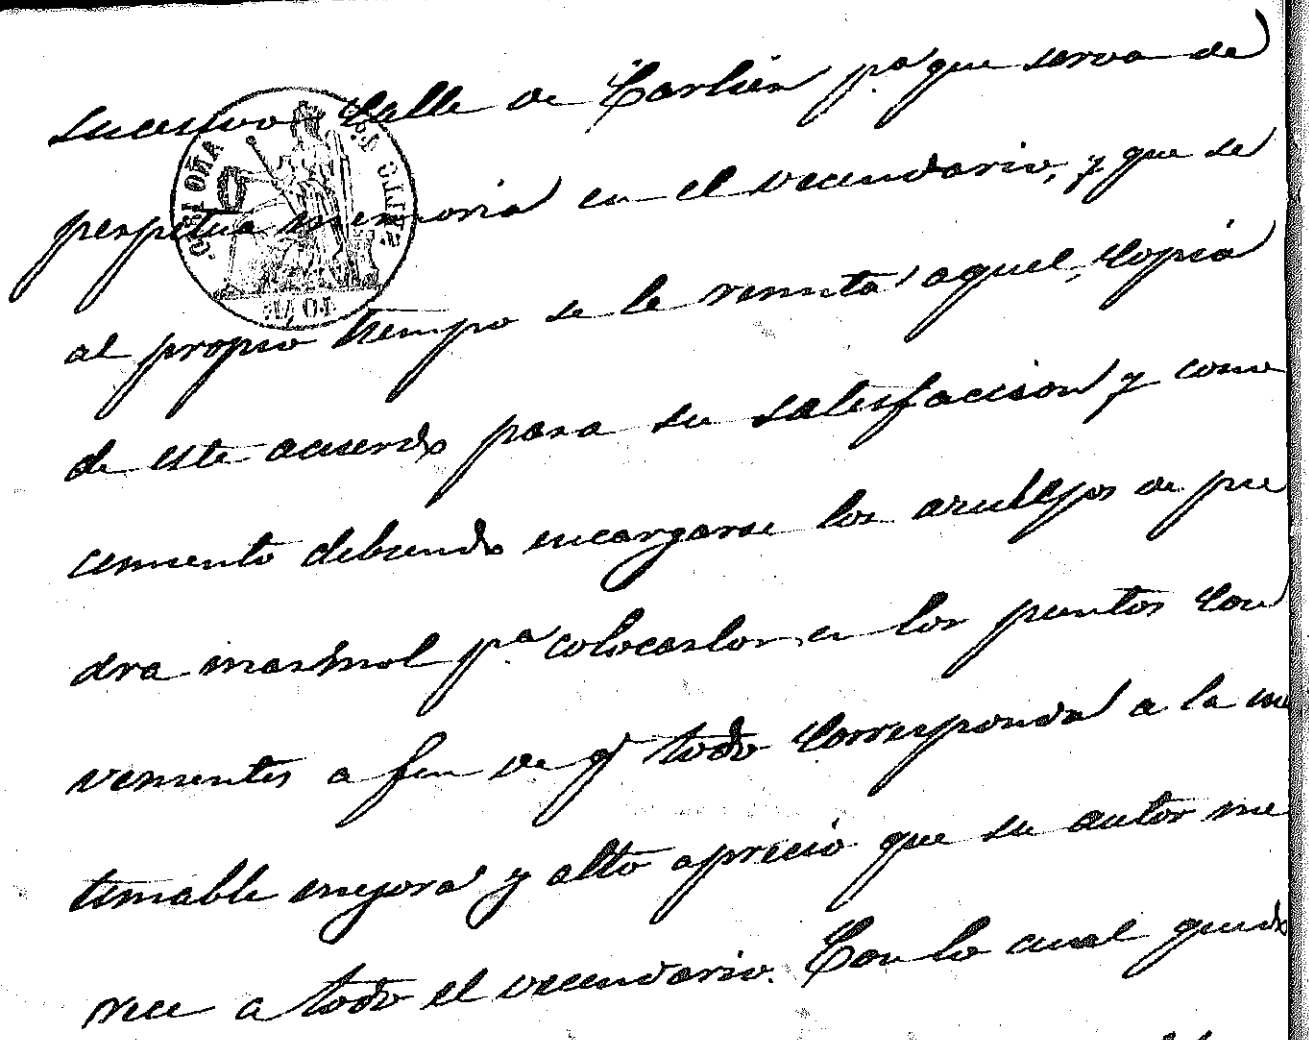 sucesivo Calle de Carlier pª que serva de
perpetua memoria en el vecindario, y que se
al propio tiempo se le remita aquel, Copia
de este acuerdo para su satisfaccion y cono
cimiento debiendo encargarse los azulejos de pie
dra marmol pª colocarlos en los puntos Con
venientes a fin de q todo Corresponda a la
timable mejora y alto aprecio que su autor me
rece a todo el vecindario. Con lo cual quedo